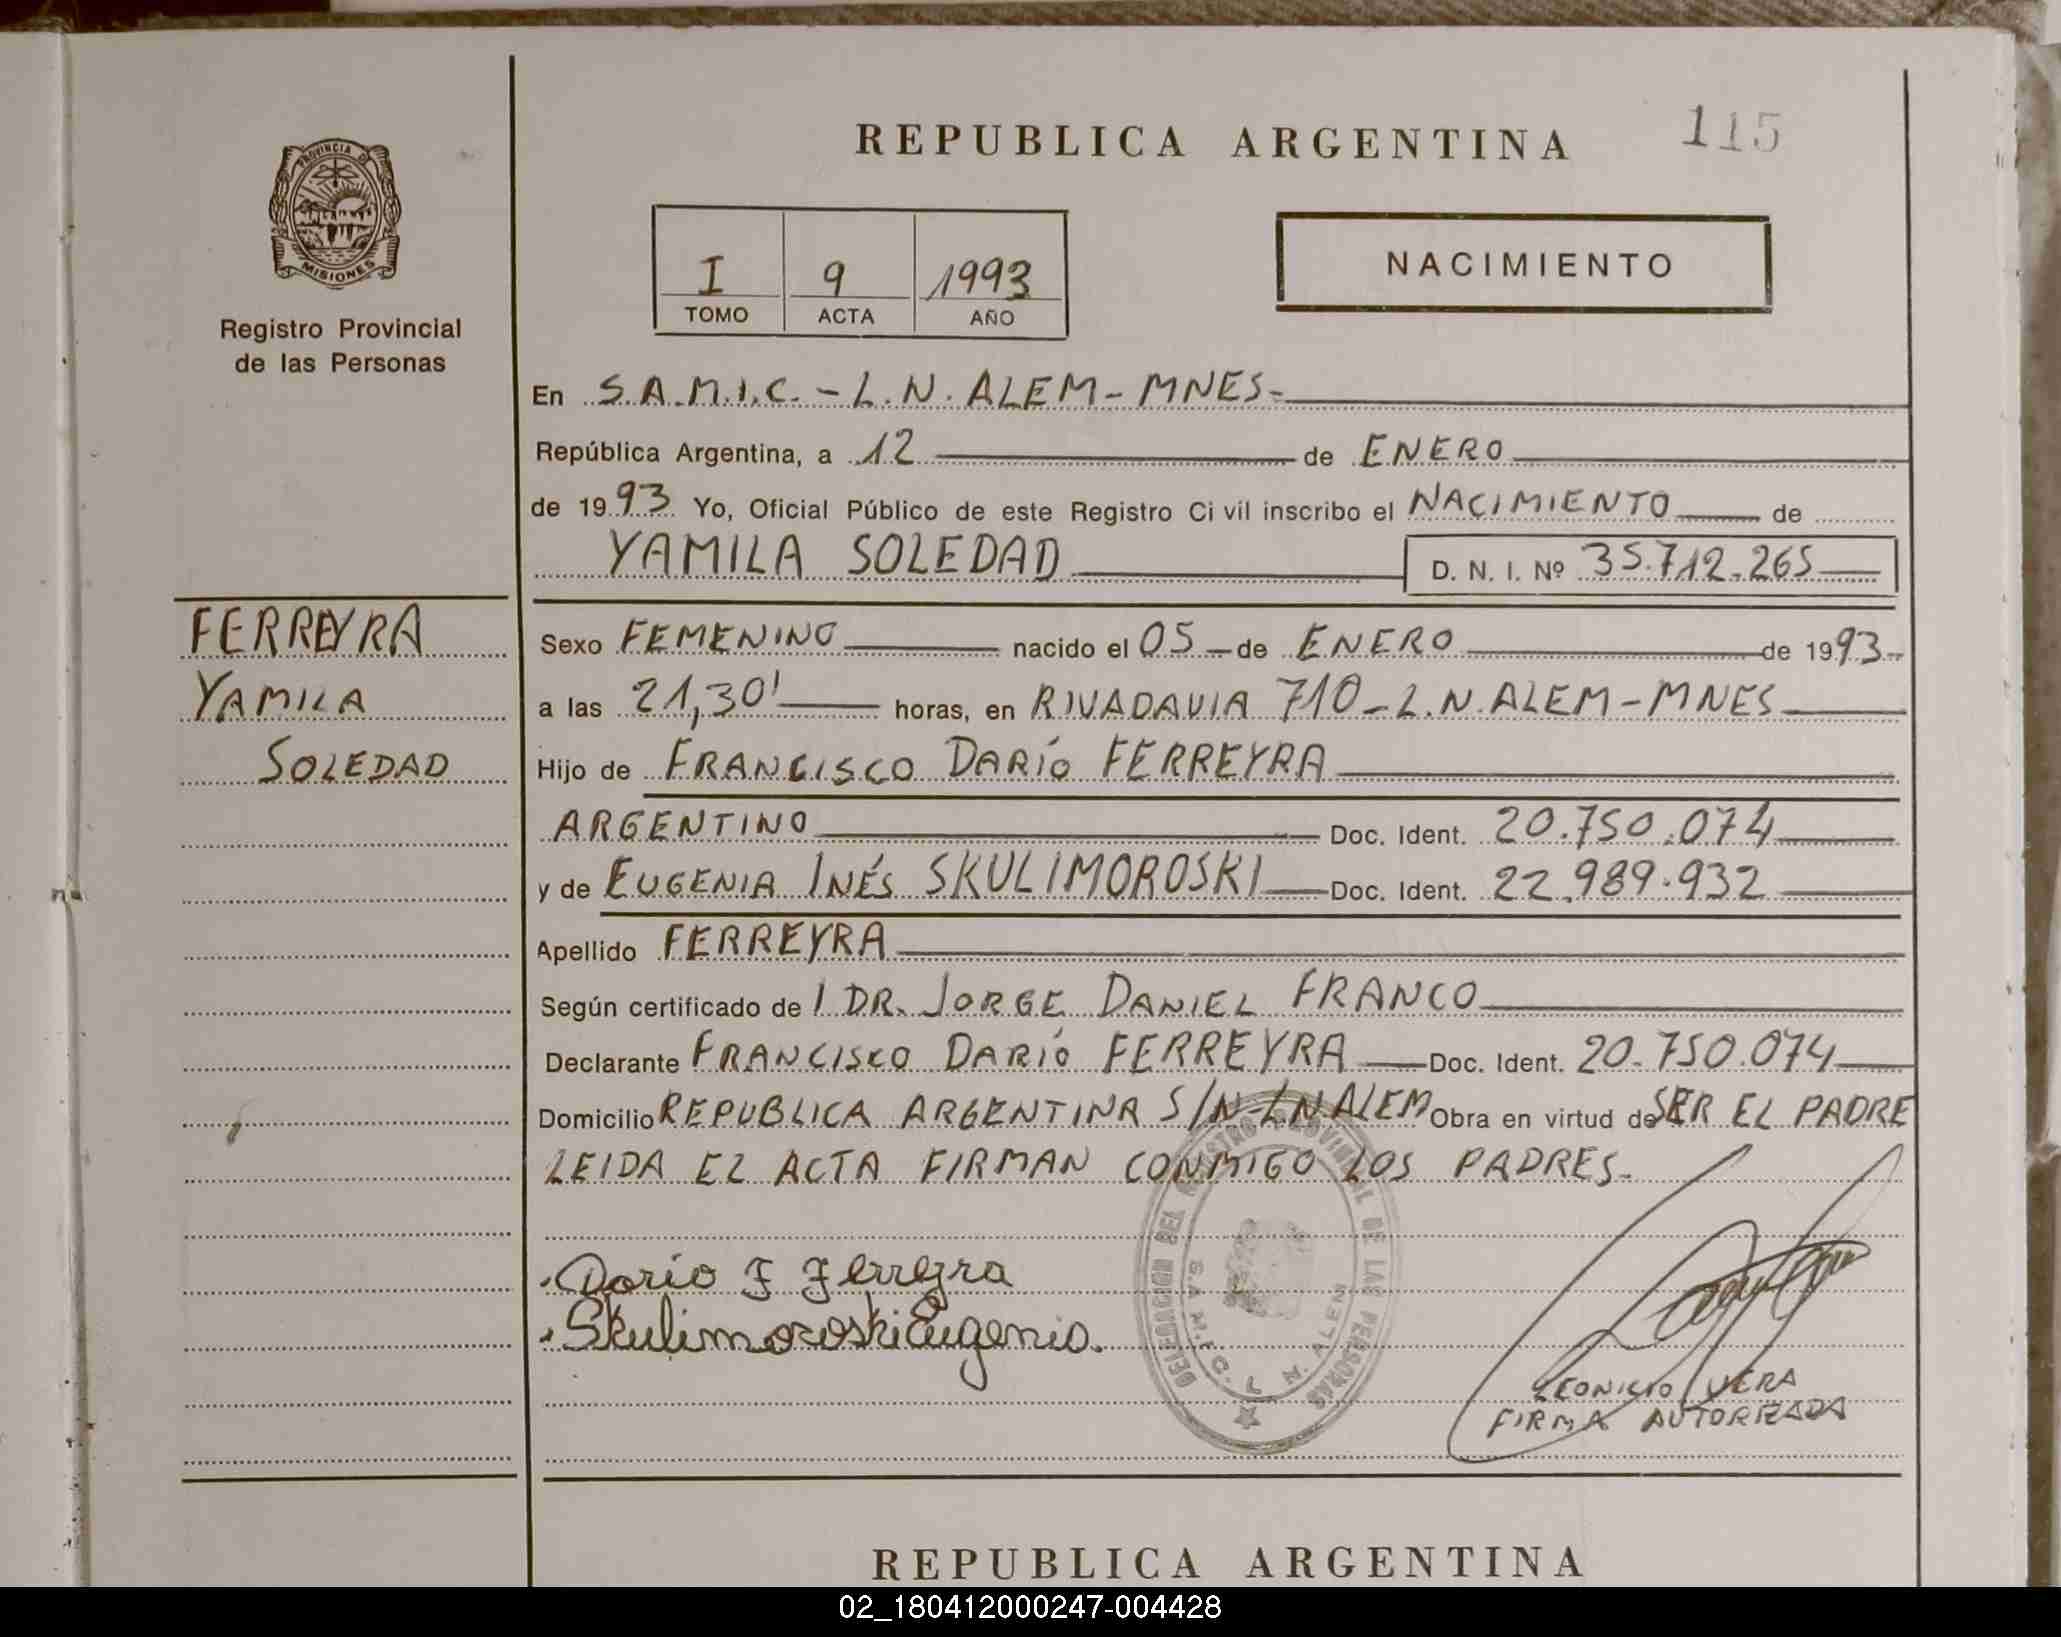 REPUBLICA ARGENTINA 115
PROVINCIA DE
MISIONES
Registro Provincial
de las Personas
I 9 1993
TOMO ACTA AÑO
NACIMIENTO
En S.A.M.I.C. - L.N. ALEM - MNES-
República Argentina, a 12 de ENERO
de 1993 Yo, Oficial Público de este Registro Civil inscribo el NACIMIENTO de
YAMILA SOLEDAD D. N. I. Nº 35.712.265
FERREYRA
YAMILA
SOLEDAD
Sexo FEMENINO nacido el 05 de ENERO de 1993
a las 21,30' horas, en RIVADAVIA 710 - L.N. ALEM - MNES
Hijo de FRANCISCO DARÍO FERREYRA
ARGENTINO Doc. Ident. 20.750.074
y de EUGENIA INÉS SKULIMOROSKI Doc. Ident. 22.989.932
Apellido FERREYRA
Según certificado de l DR. JORGE DANIEL FRANCO
Declarante FRANCISCO DARÍO FERREYRA Doc. Ident. 20.750.074
Domicilio REPUBLICA ARGENTINA S/N-LN ALEM Obra en virtud de SER EL PADRE
LEIDA EL ACTA FIRMAN CONMIGO LOS PADRES.
Dario F Ferreyra
Skulimoroski Eugenia.
DELEGACION DEL REGISTRO PROVINCIAL DE LAS PERSONAS
S.A.M.I.C. L. N. ALEM
LEONICIO VERA
FIRMA AUTORIZADA
REPUBLICA ARGENTINA
02_180412000247-004428